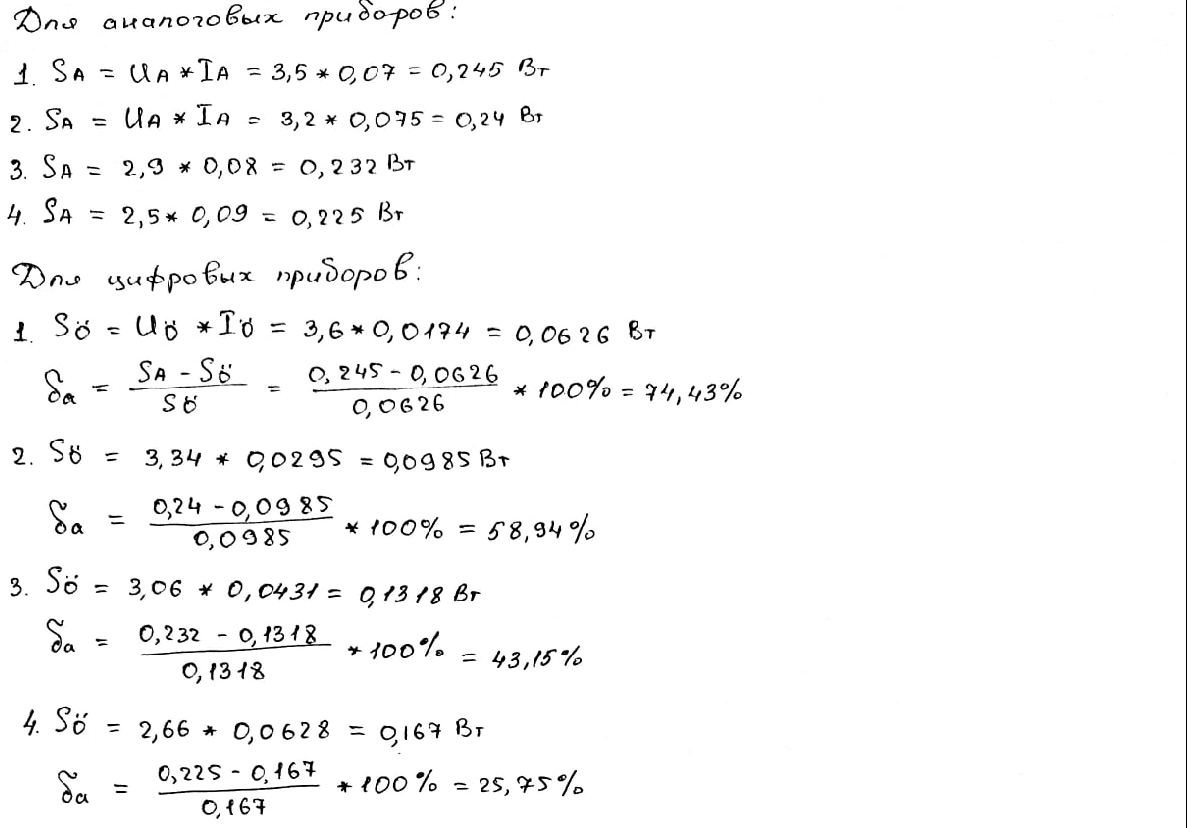 Для аналоговых приборов:
1. SA = UA * IA = 3,5 * 0,07 = 0,245 Вт
2. SA = UA * IA = 3,2 * 0,075 = 0,24 Вт
3. SA = 2,9 * 0,08 = 0,232 Вт
4. SA = 2,5 * 0,09 = 0,225 Вт
Для цифровых приборов:
1. Sö = Uö * Iö = 3,6 * 0,0174 = 0,0626 Вт
δa = (SA - Sö) / Sö = (0,245 - 0,0626) / 0,0626 * 100% = 74,43%
2. Sö = 3,34 * 0,0295 = 0,0985 Вт
δa = (0,24 - 0,0985) / 0,0985 * 100% = 58,94%
3. Sö = 3,06 * 0,0431 = 0,1318 Вт
δa = (0,232 - 0,1318) / 0,1318 * 100% = 43,15%
4. Sö = 2,66 * 0,0628 = 0,167 Вт
δa = (0,225 - 0,167) / 0,167 * 100% = 25,75%